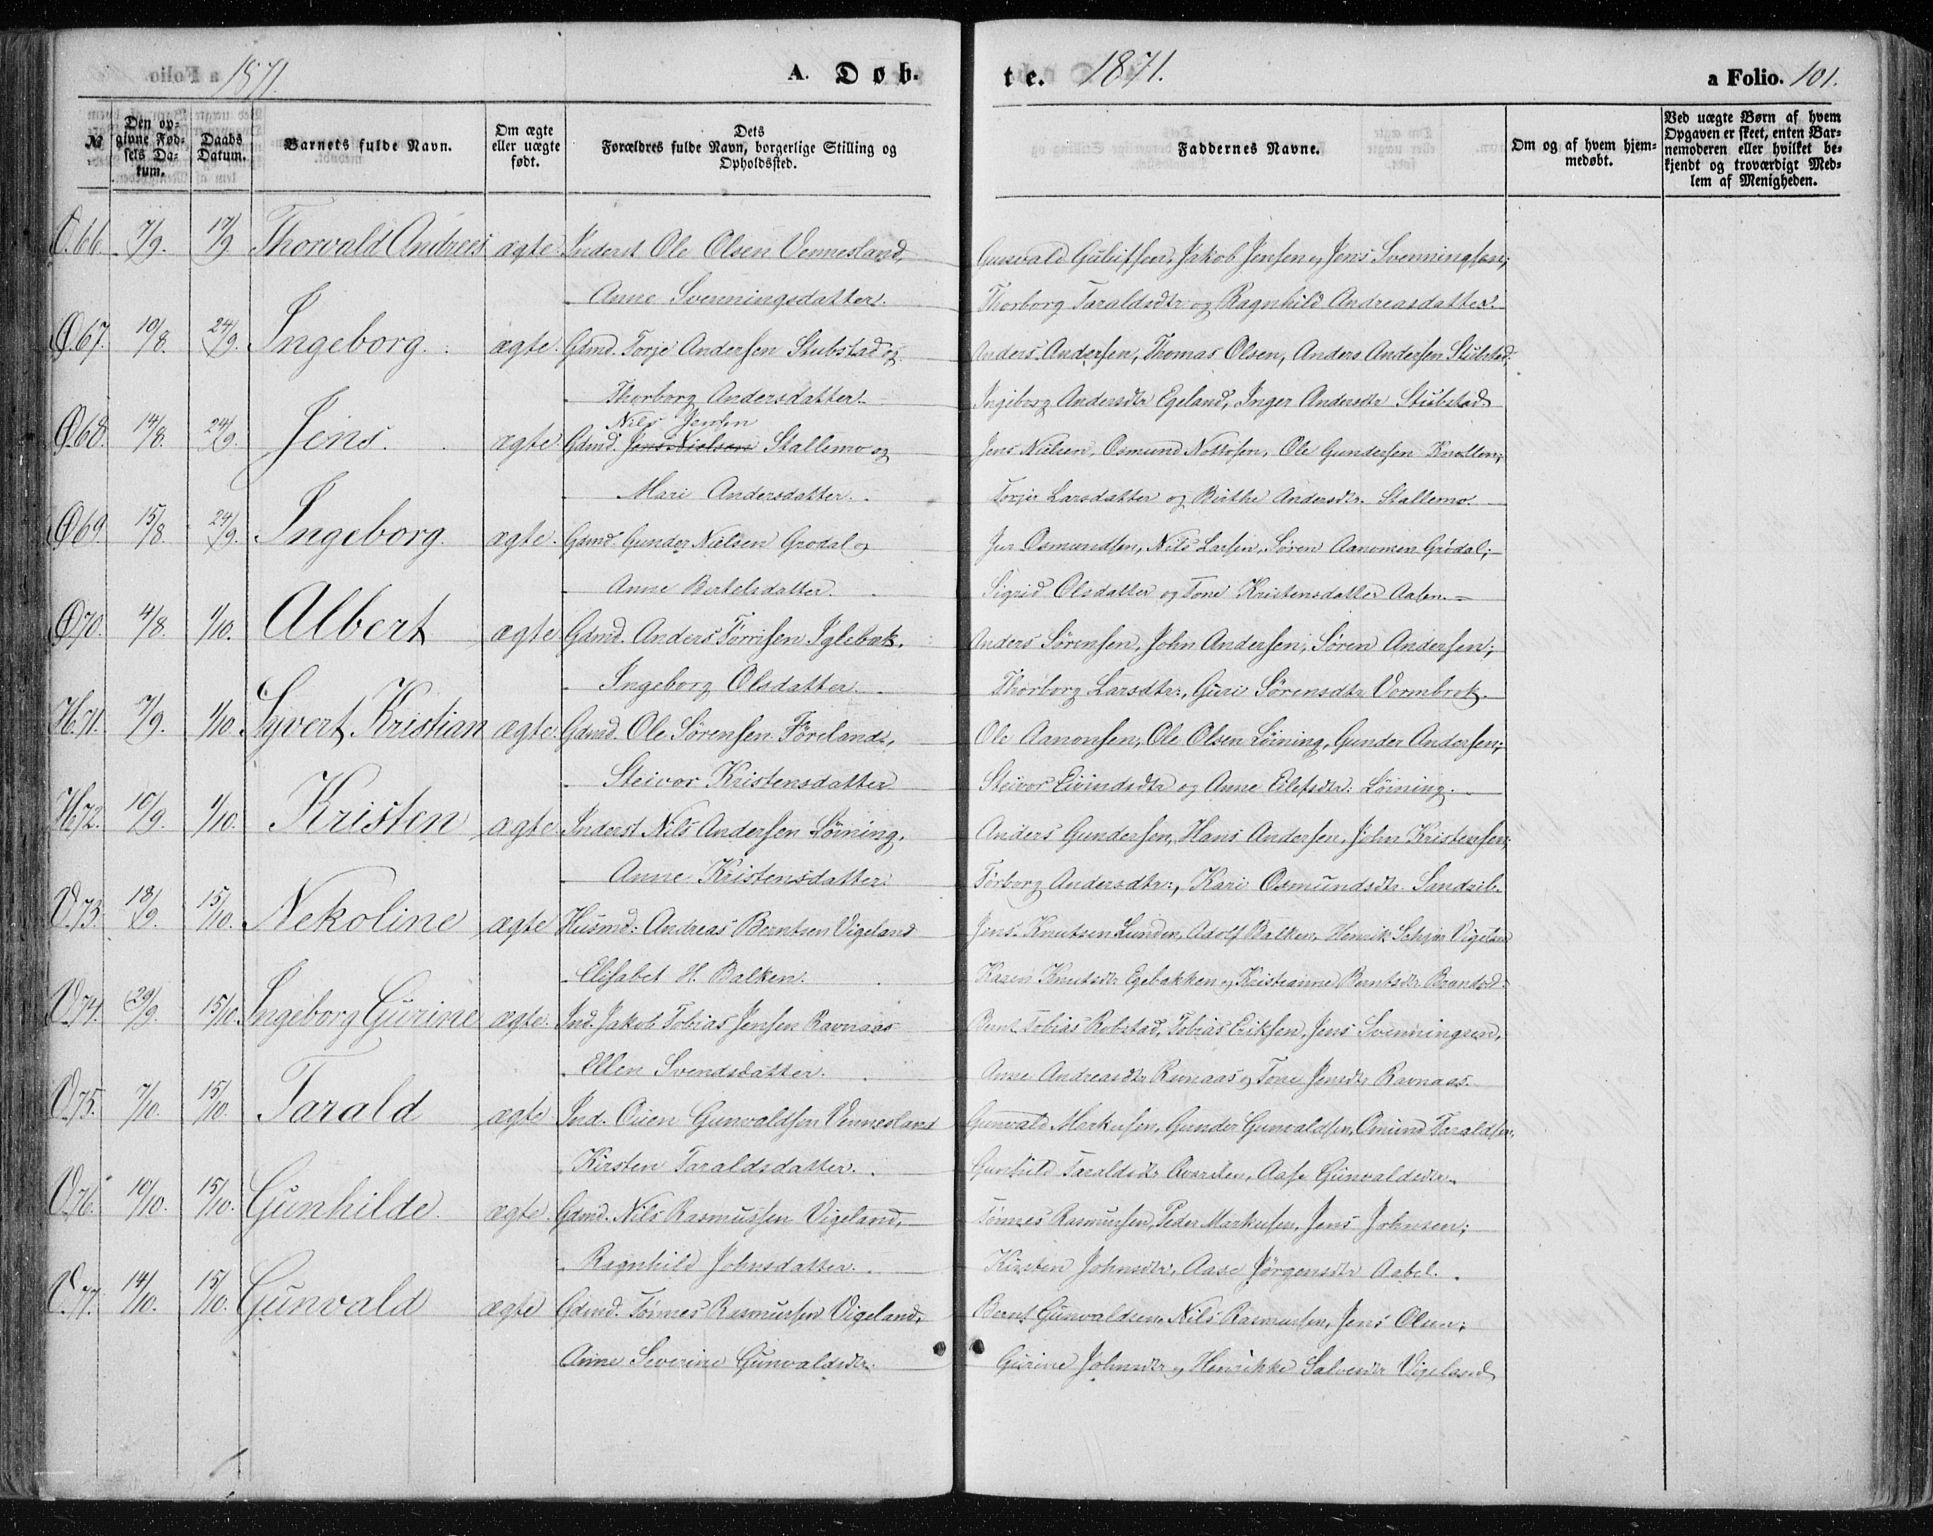 1871. A. Døb- te. 1871. a Folio. 101.
№
Den opgivne Fødsels Datum.
Daabs Datum.
Barnets fulde Navn.
Om ægte eller uægte født.
Dets Forældres fulde Navn, borgerlige Stilling og Opholdssted.
Faddernes Navne.
Om og af hvem hjemmedøbt.
Ved uægte Børn af hvem Opgaven er skeet, enten Barnemoderen eller hvilket bekjendt og troværdigt Medlem af Menigheden.
66. 7/9. 17/9 Thorvald Andreas ægte Inderst Ole Olsen Vennesland, Jakob Jensen og Jens Svenningsen;
Anne Svenningsdatter. Thorborg Taraldsdtr og Ragnhild Andreasdatter.
Ø67. 10/8. 24/9. Ingeborg. ægte. Gdmd. Torje Andersen Stubstad og Anders Andersen, Thomas Olsen, Anders Andersen Stubstad;
Thorborg Andersdatter. Ingeborg Andersdtr Egeland, Inger Andersdtr Stubstad
Nils Jensen
Ø68. 14/8. 24/9. Jens. ægte Gdmd. Jens Nielsen Stallemo og Jens Nielsen, Osmund Nottosen, Ole Gundersen Knollen;
Mari Andersdatter. Torjer Larsdatter og Birthe Andersdtr. Stallemo.
Ø69. 15/8. 24/9. Ingeborg. ægte. Gdmd. Gunder Nielsen Grødal og Osmundsen, Nils Larsen, Søren Aanonsen Grødal;
Anne Bertelsdatter. Sigrid Olsdatter og Tone Kristensdatter Aasen.
Ø70. 4/8. 1/10. Albert ægte Gdmd. Anders Torrisen Iglebæk, Anders Sørensen, John Andersen, Søren Andersen;
Ingeborg Olsdatter. Thorborg Larsdtr., Guri Sørensdtr Vormbrok.
H71. 7/9. 1/10. Syvert Kristian ægte Gdmd. Ole Sørensen Føreland, Ole Aanonsen, Ole Olsen Løining, Gunder Andersen;
Steivor Kristensdatter Steivor Eivindsdtr og Anne Eilefsdtr: Løining.
H72. 10/9. 1/10. Kristen ægte Inderst Nils Andersen Løining, Anders Gundersen, Hans Andersen, John Kristensen;
Anne Kristensdatter. Torborg Andersdtr., Kari Osmundsdtr.
V.73. 18/9. 15/10. Nekoline ægte Husmd: Andreas Berntsen Vigeland Jens Knutsen Lunden, Adolf Balken, Henrik Vigeland
Elisabet H. Balken. Karen Knutsdtr Egebakken og Kristianne Berntsdtr
V.74. 29/9. 15/10. Ingeborg Gurine ægte. Ind. Jakob Tobias Jensen Ravnaas Bernt Tobias Robstad, Tobias Eriksen, Jens Svenningsen,
Ellen Svendsdatter. Anne Andreasdtr Ravnaas og Tone Jensdtr Ravnaas.
V.75. 7/10. 15/10. Tarald ægte Ind. Osuen Gunvaldsen Vennesland Gunvald Markusen, Gunder Gunvaldsen, Omund Taraldsen,
Kirsten Taraldsdatter. Gunhild Taraldsdtr Aase Gunvaldsdtr.
V.76. 10/10. 15/10. Gunhilde. ægte. Gdmd. Nils Rasmussen Vigeland, Tønnes Rasmussen, Peder Markusen, Jens Johnsen;
Ragnhild Johnsdatter. Kirsten Johnsdtr, Aase Jørgensdtr Aabel.
V.77. 14/10. 15/10. Gunvald ægte Gdmd. Tønnes Rasmussen Vigeland, Bernt Gunvaldsen, Nils Rasmussen, Jens Olsen;
Anne Severine Gunvaldsdtr. Gurine Johnsdtr og Henrikke Salvesdtr Vigeland